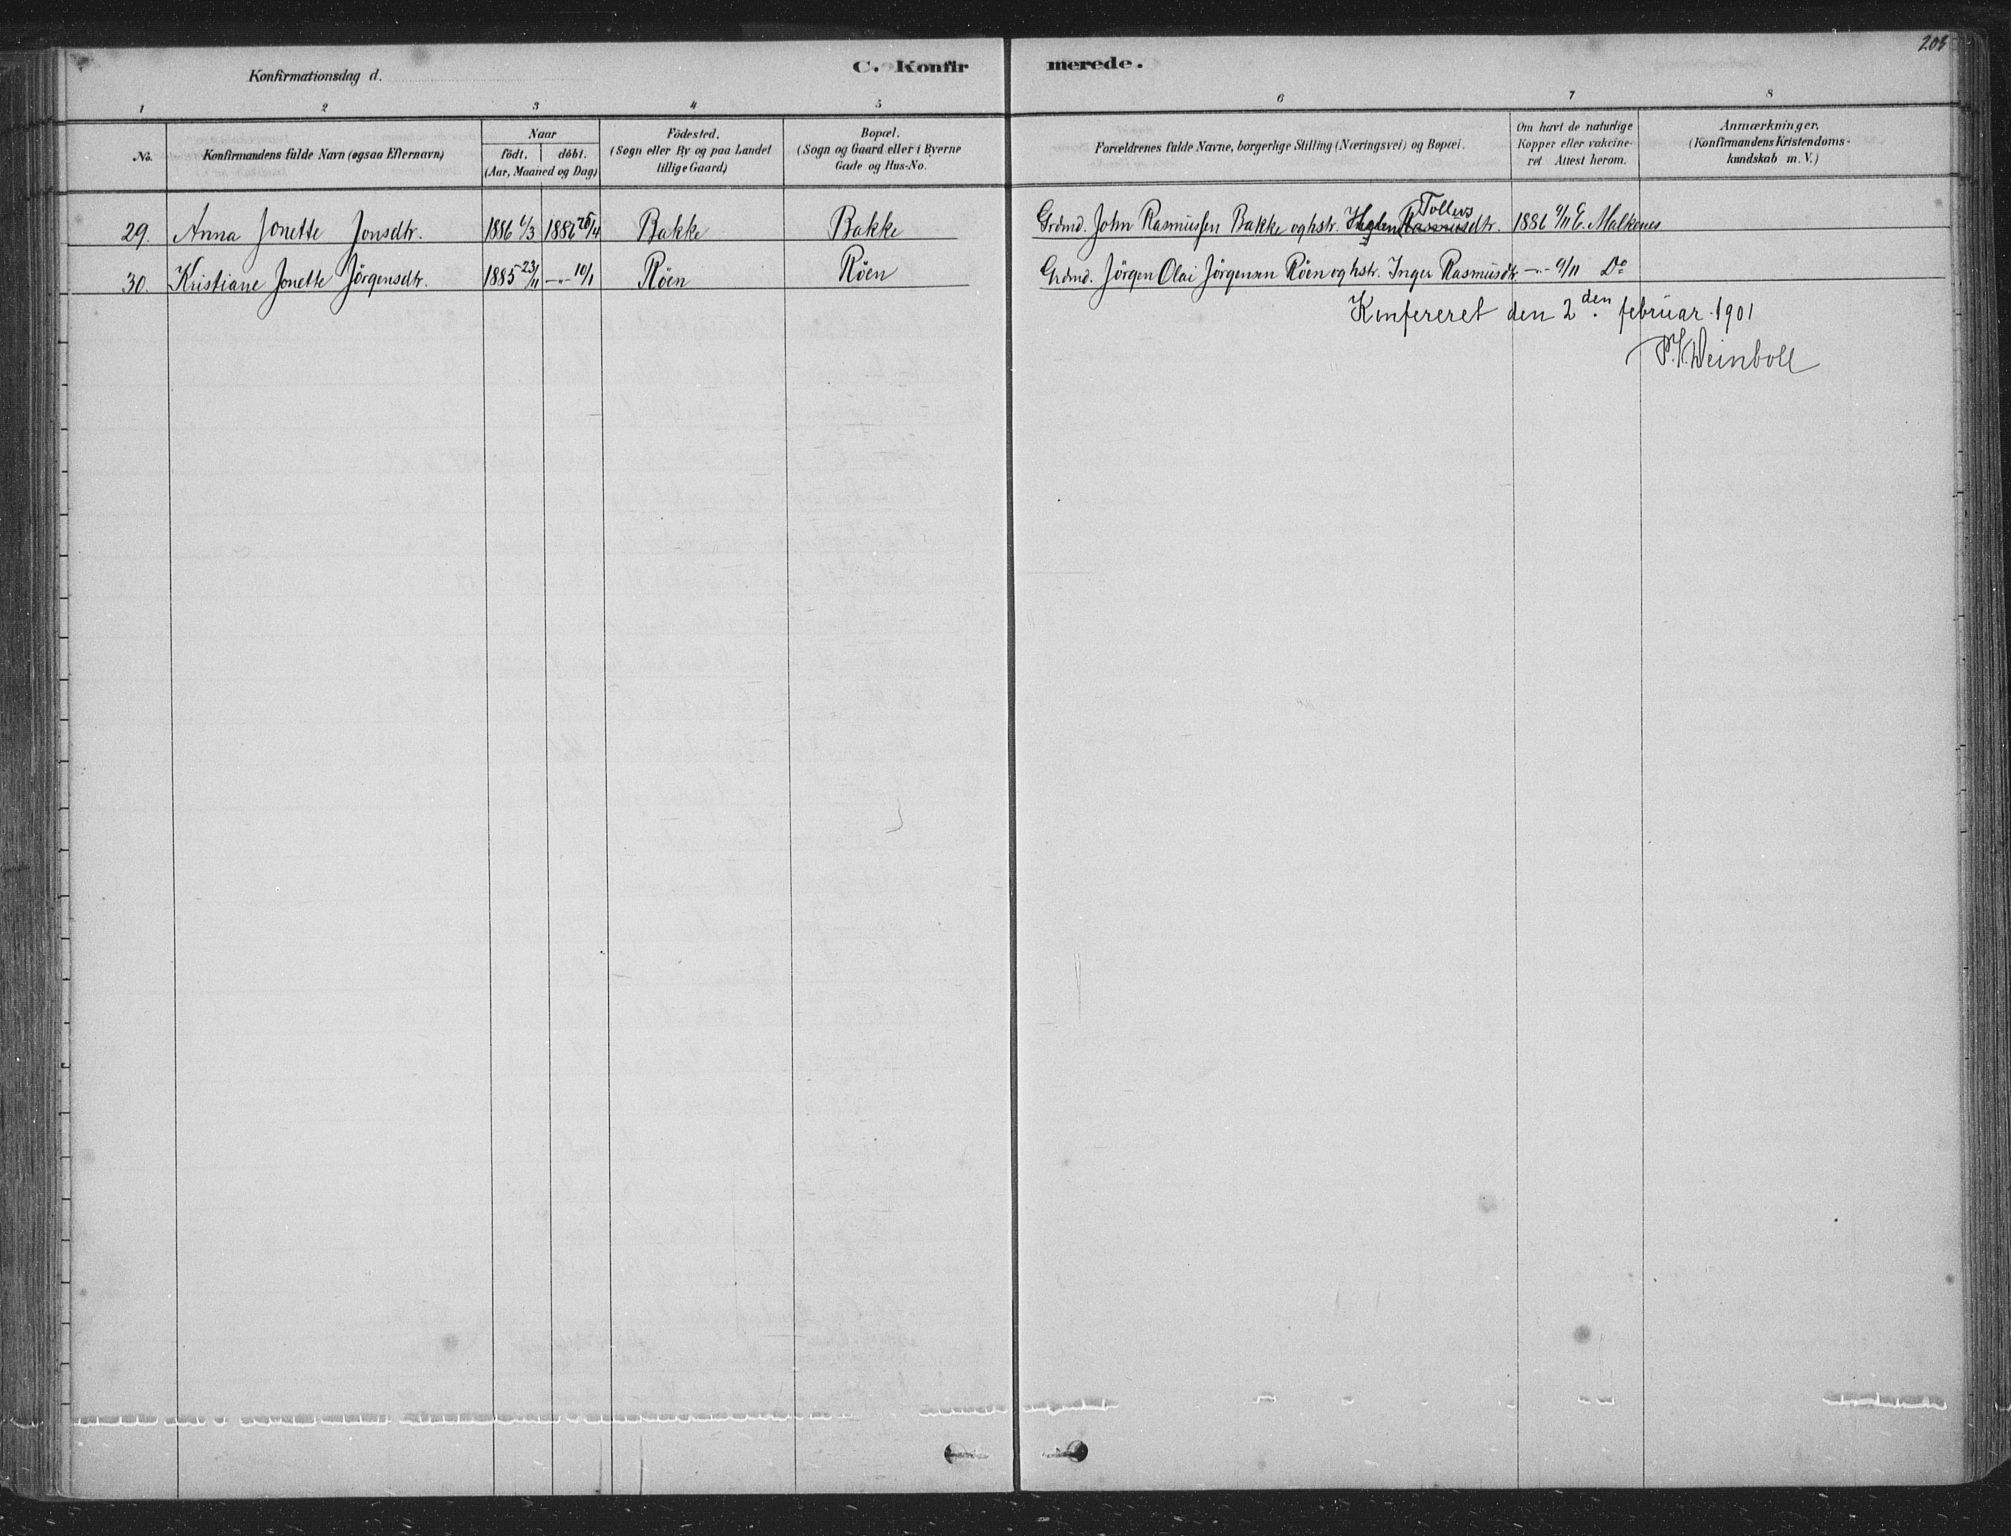 203
Konfirmationsdag d.
C. Konfir merede.
1 2 3 4 5 6 7 8
No.
Konfirmandens fulde Navn (ogsaa Efternavn)
Naar
födt. döbt.
(Aar, Maaned og Dag)
Födested.
(Sogn eller By og paa Landet
tillige Gaard)
Bopæl.
(Sogn og Gaard eller i Byerne
Gade og Hus-No.
Forældrenes fulde Navne, borgerlige Stilling (Næringsvei) og Bopæl.
Om havt de naturlige
Kopper eller vakcine-
ret Attest herom.
Anmærkninger.
(Konfirmandens Kristendoms-
kundskab m. V.)
Tollevs
29. Anna Jonette Jonsdtr. 1886 6/3 1886 25/4 Bakke Bakke Grdmd. John Rasmussen Bakke og hstr. Rasmusdtr. 1886 6/11 E. Malkenes
30. Kristiane Jonette Jörgensdtr. 1885 23/11 -"- 10/1 Röen Röen Grdmd. Jörgen Olai Jörgensen Röen og hstr. Inger Rasmusdtr. -"- 6/11 Do
Konfereret den 2den februar 1901
P. V. Deinboll